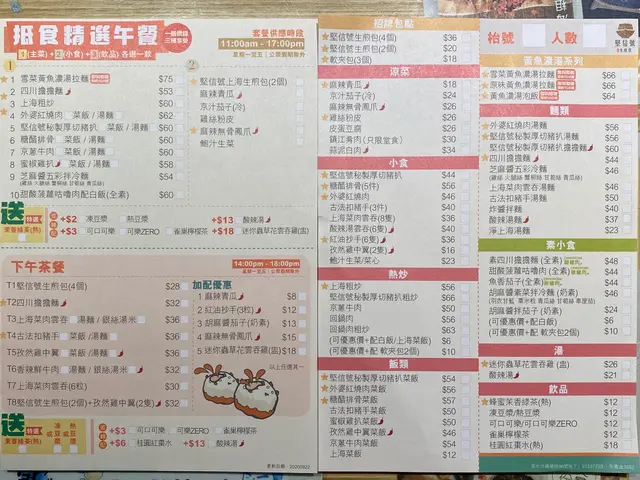 抵食精選午餐
一個價錢
三樣享受
1(主菜)+2(小食)+3(飲品) 各選一款
客餐供應時段
11:00am - 17:00pm
星期一至五 | 公眾假期除外
1
1 雪菜黃魚濃湯拉麵 $75
2 四川擔擔麵 $53
3 上海粗炒 $60
4 外婆紅燒肉 菜飯 / 湯麵 $62
5 堅信號秘製厚切豬扒 菜飯 / 湯麵 $60
6 糖醋排骨 菜飯 / 湯麵 $60
7 京蔥牛肉 菜飯 / 湯麵 $60
8 蜜椒雞扒 菜飯 / 湯麵 $58
9 芝麻醬五彩拌冷麵 $54
10 甜酸菠蘿咕嚕肉配白飯(全素) $60
2
堅信號上海生煎包(2個)
麻辣青瓜
京汁茄子(冷)
雞絲粉皮
麻辣無骨鳳爪
鮑汁生菜
送
特選
茉香綠茶(熱)
+$2 凍豆漿 熱豆漿
+$3 可口可樂 可樂ZERO 雀巢檸檬茶
+$13 酸辣湯
+$18 迷你蟲草花雲吞雞(盅)
下午茶餐
14:00pm - 18:00pm
星期一至五 | 公眾假期除外
T1 堅信號生煎包(4個) $28
T2 四川擔擔麵 $32
T3 上海菜肉雲吞 湯麵 / 銀絲湯米 $36
T4 古法扣豬手 菜飯 / 湯麵 $36
T5 孜然雞中翼 菜飯 / 湯麵 $36
T6 香辣鮮牛肉 湯麵 / 銀絲湯米 $32
T7 上海菜肉雲吞(6粒) $30
T8 堅信號生煎包(2個)+孜然雞中翼(2隻) $32
加配優惠
1 麻辣青瓜 $8
2 紅油抄手(3粒) $12
3 胡麻醬茄子(奶素) $13
4 麻辣無骨鳳爪 $15
5 迷你蟲草花雲吞雞(盅) $18
以上任選其一
送
特選
茉香綠茶(熱)
凍 或 熱 豆漿
+$3 可口可樂 可樂ZERO 雀巢檸檬茶
+$6 桂圓紅棗水 +$13 酸辣湯
更新日期：20200922
招牌包點
堅信號生煎包(4個) $36
堅信號生煎包(2個) $20
軟夾包(3個) $18
涼菜
麻辣青瓜 $18
京汁茄子(冷) $24
麻辣無骨鳳爪 $26
雞絲粉皮 $26
皮蛋豆腐 $26
鎮江肴肉(只限堂食) $30
蒜泥白肉 $34
小食
堅信號秘製厚切豬扒 $44
糖醋排骨(5件) $56
外婆紅燒肉 $56
古法扣豬手(3件) $40
上海菜肉雲吞(8隻) $36
酸辣雲吞(8隻) $40
紅油抄手(6隻) $36
孜然雞中翼(2隻) $16
鮑汁生菜/菜心 $23
熱炒
上海粗炒 $56
堅信號秘製厚切豬扒粗炒 $66
京蔥牛肉 $50
回鍋肉 $56
回鍋肉粗炒 $63
(可優惠價+配白飯/上海菜飯) $6
(可優惠價+配 軟夾包2個) $10
飯類
堅信號秘製厚切豬扒菜飯 $54
外婆紅燒肉菜飯 $56
糖醋排骨菜飯 $57
古法扣豬手菜飯 $50
蜜椒雞扒菜飯 $50
孜然雞中翼菜飯 $46
京蔥牛肉菜飯 $54
上海菜飯 $12
枱號
人數
堅信號
黃魚濃湯系列
雪菜黃魚濃湯拉麵 $66
原味黃魚濃湯拉麵 $66
黃魚濃湯泡飯 $64
麵類
外婆紅燒肉湯麵 $56
堅信號秘製厚切豬扒湯麵 $56
四川擔擔麵 $44
芝麻醬五彩拌冷麵 $46
上海菜肉雲吞湯麵 $46
古法扣豬手湯麵 $50
炸醬拌麵 $40
酸辣湯麵 $37
淨上海湯麵 $23
素小食
素四川擔擔麵(全素) $48
甜酸菠蘿咕嚕肉(全素) $44
魚香茄子(全素) $44
胡麻醬素菜拌冷麵(奶素) $46
胡麻醬茄子(奶素) $24
(可優惠價+配白飯) $6
(可優惠價+配 軟夾包2個) $10
湯
迷你蟲草花雲吞雞(盅) $26
酸辣湯 $21
飲品
蜂蜜茉香綠茶(熱) $12
凍豆漿/熱豆漿 $12
可口可樂/可口可樂ZERO $12
雀巢檸檬茶 $12
桂圓紅棗水(熱) $18